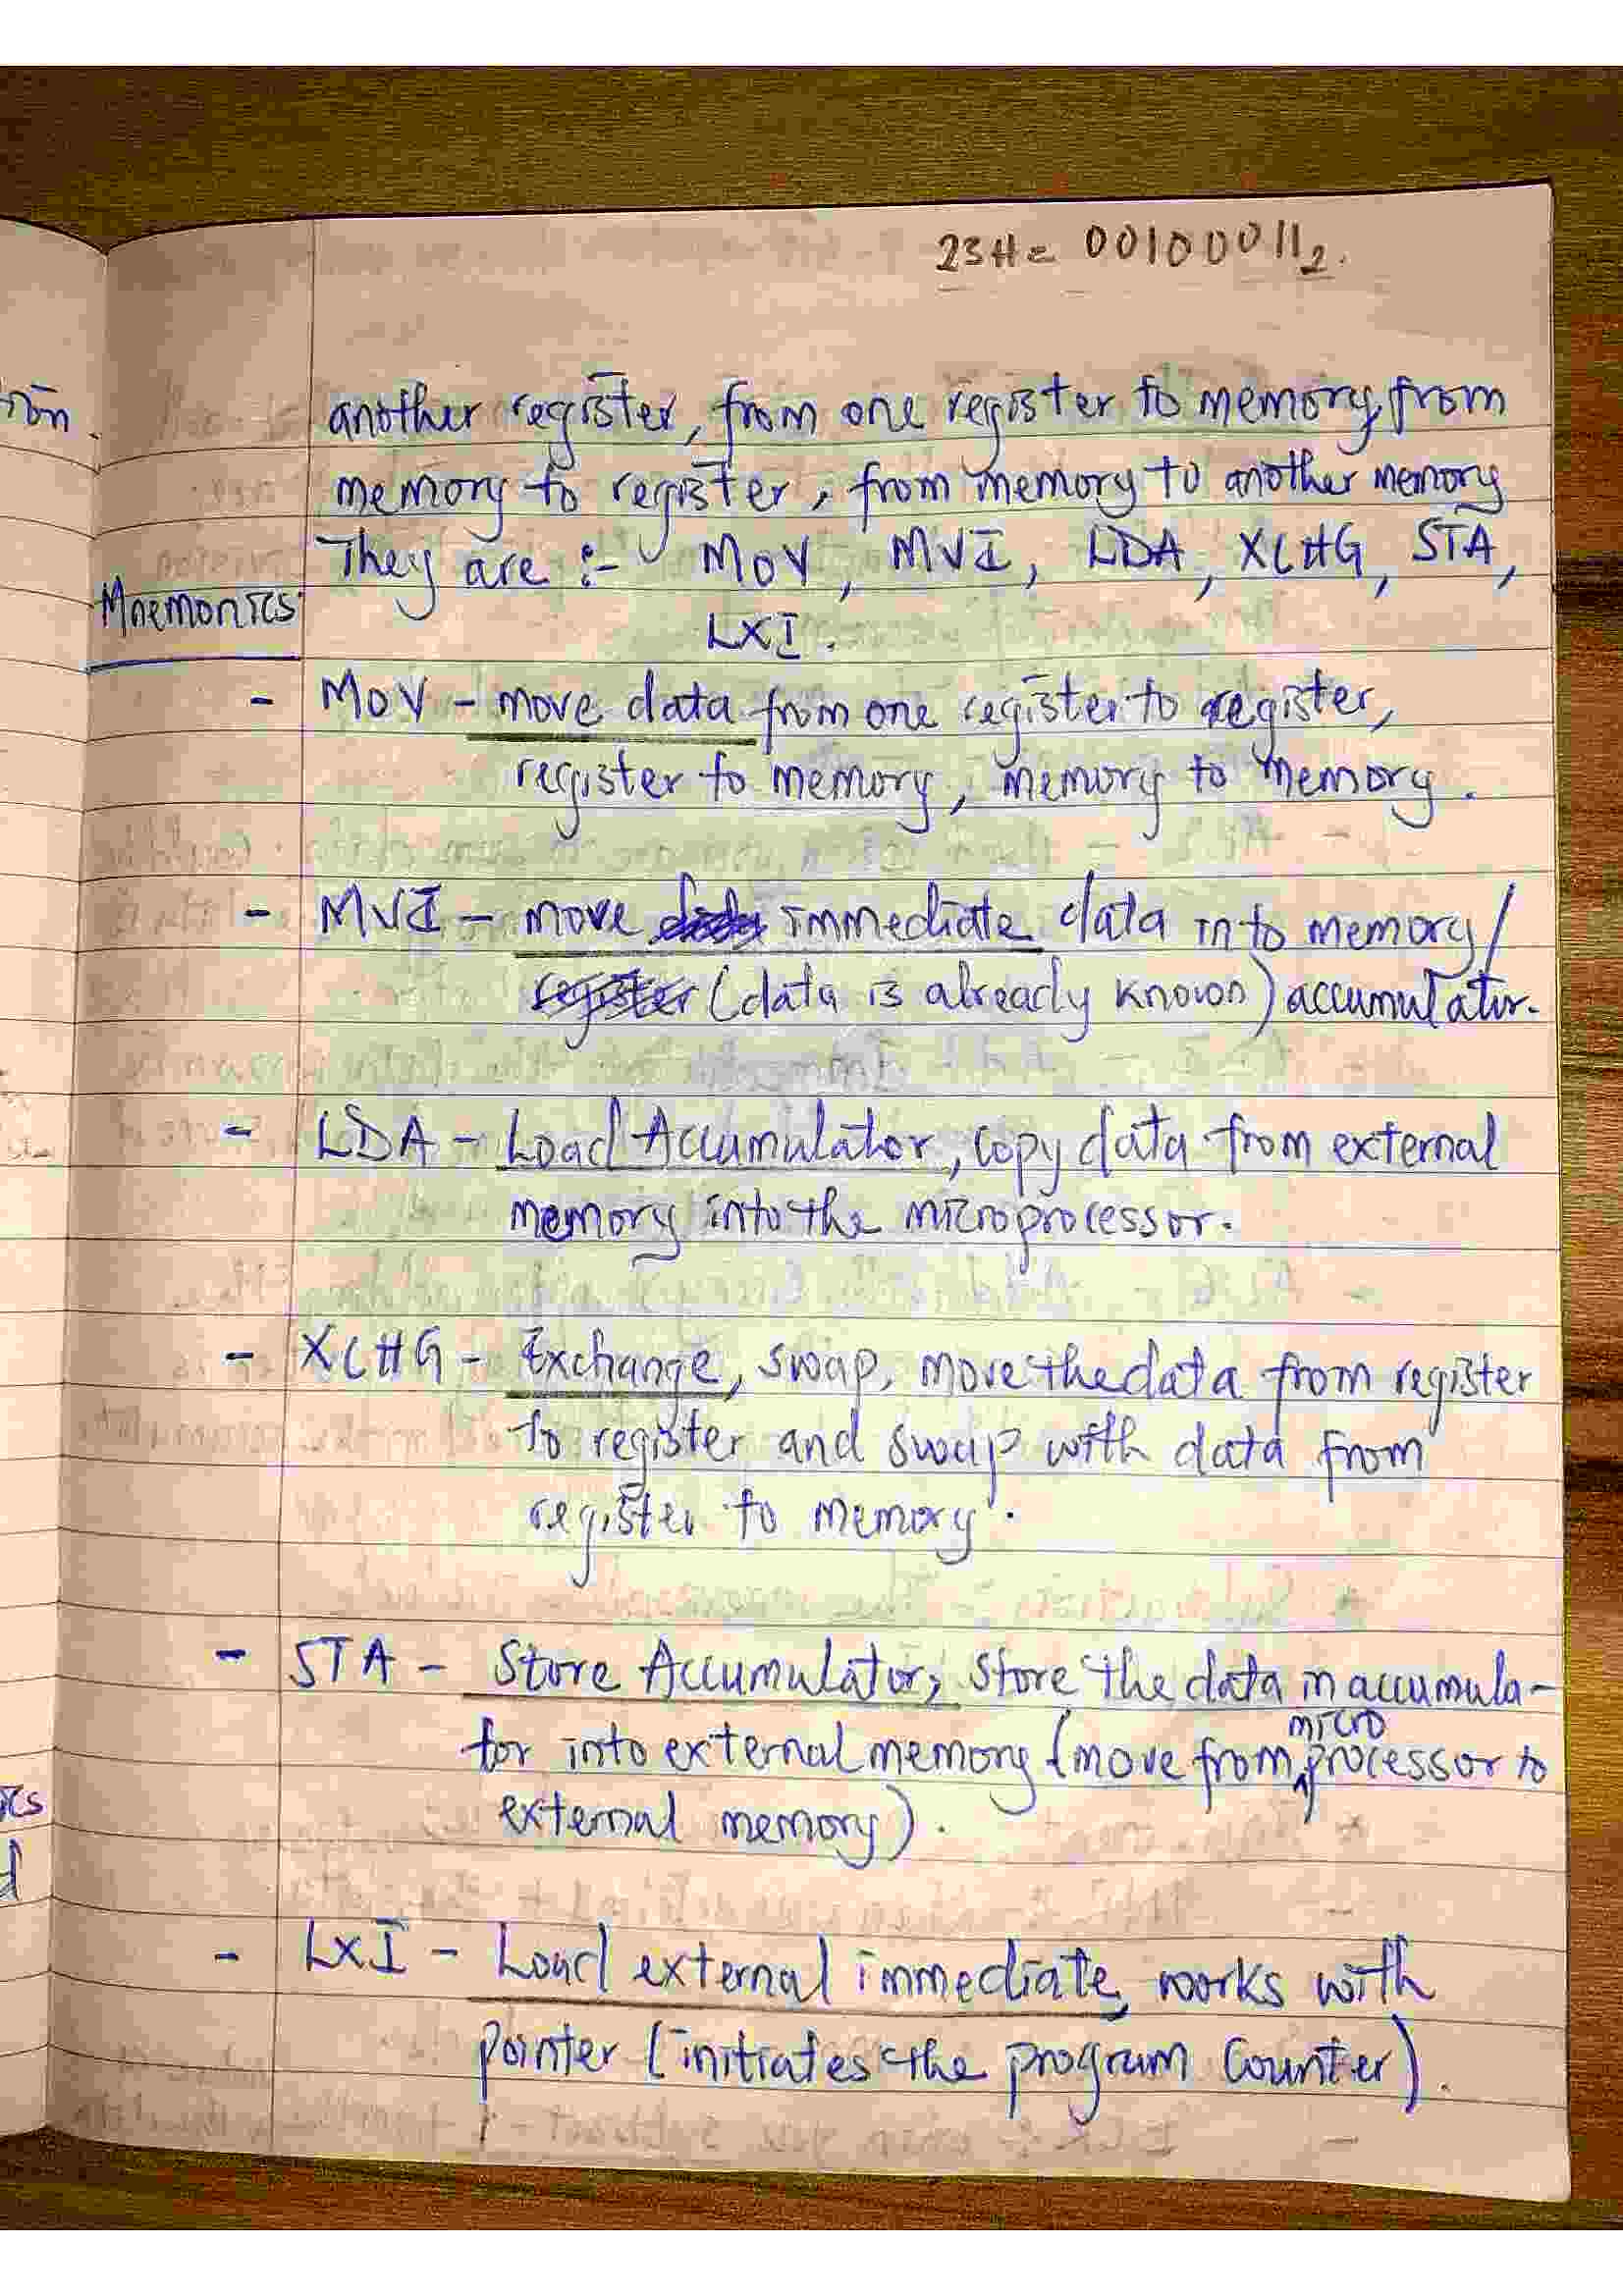 23H = 00100011₂.
another register, from one register to memory, from
memory to register, from memory to another memory
They are :- MOV, MVI, LDA, XCHG, STA,
LXI.
Mnemonics
- MOV - move data from one register to register,
register to memory, memory to memory.
- MVI - move immediate data into memory/
register (data is already known) accumulator.
- LDA - Load Accumulator, copy data from external
memory into the microprocessor.
- XCHG - Exchange, swap, move the data from register
to register and swap with data from
register to memory.
- STA - Store Accumulator, store the data in accumula-
tor into external memory (move from micro processor to
external memory).
- LXI - Load external immediate, works with
pointer (initiates the program counter).